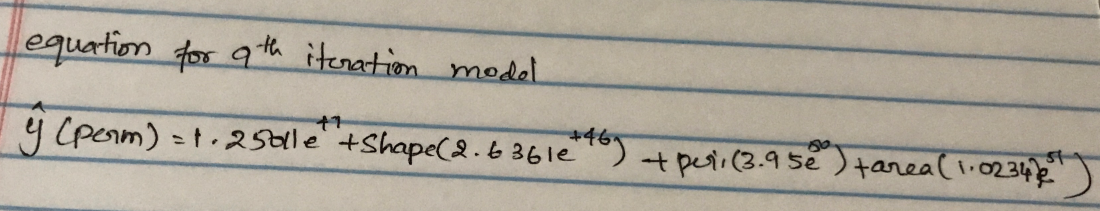 equation for 9th iteration model
ŷ (perm) = 1.25011e^+7 + Shape(2.6361e^+46) + peri.(3.95e^50) + area(1.0234e^51)